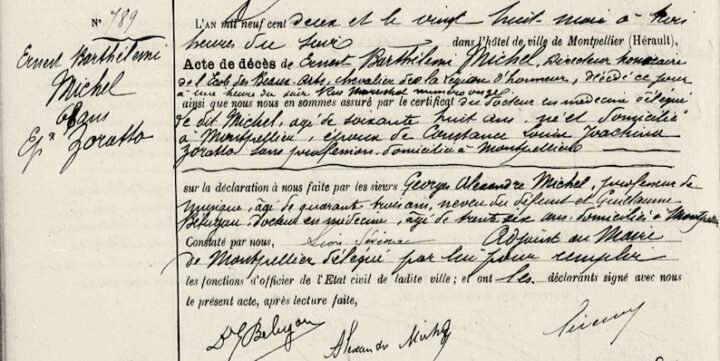 N° 789
Ernest Barthélemi
Michel
68 ans
Ep.x Zoratto
L'AN mil neuf cent deux et le vingt huit mai à trois
heures du soir dans l'hôtel de ville de Montpellier (Hérault),
Acte de décès de Ernest Barthélemi Michel, Directeur honoraire
de l'Ecole des Beaux-Arts, chevalier de la Légion d'honneur, décédé ce jour
à une heure du soir Rue Maréchal numéro onze
ainsi que nous nous en sommes assuré par le certificat du docteur en médecine délégué
le dit Michel, agé de soixante huit ans, né et domicilié
à Montpellier, époux de Constance Louise Joachina
Zoratto sans profession domiciliée à Montpellier
sur la déclaration à nous faite par les sieurs Georges Alexandre Michel, professeur de
musique, âgé de quarante trois ans, neveu du défunt et Guillaume
docteur en médecine, âgé de trente six ans domiciliés à Montpellier
Constaté par nous, Léon Adjoint au Maire
de Montpellier délégué par lui pour remplir
les fonctions d'officier de l'Etat civil de ladite ville ; et ont les déclarants signé avec nous
le présent acte, après lecture faite,
Alexandre Michel